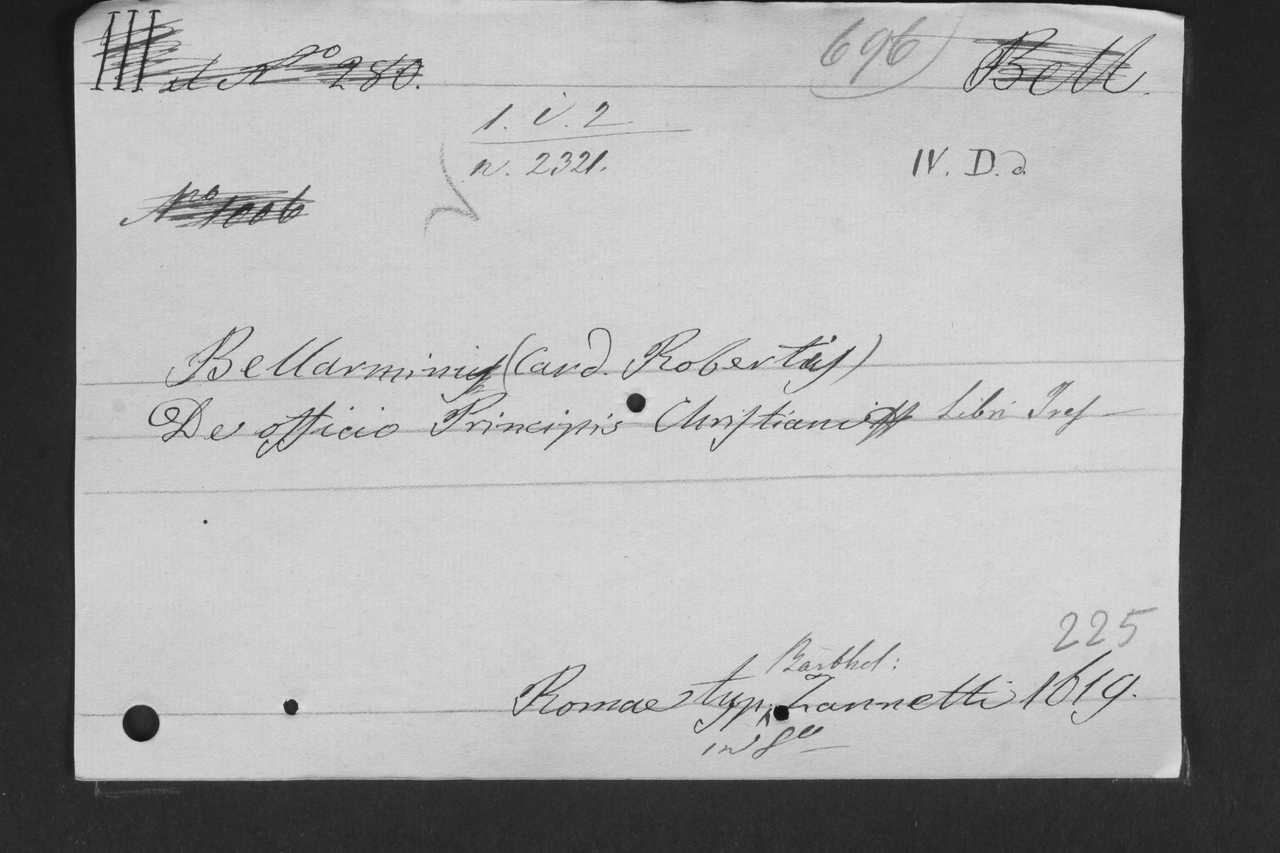 III d Nro 280. 696 Bell.
1. i. 2
n. 2321. IV. D. d.
Nro 1006
Bellarminus (Card. Robertus)
De officio Principis Christiani Libri Tres
225
Barthol:
Romae typ. Zannetti 1619.
in 8vo